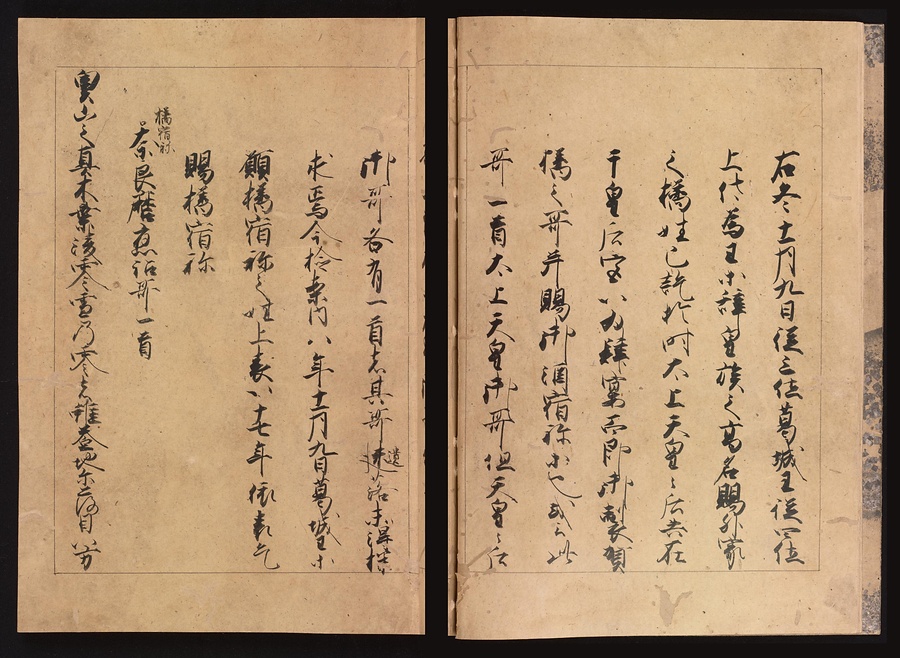 右冬十一月九日従三位葛城王従四位
上佐為王等辞皇族之高名賜外家
之橘姓已訖於時太上天皇々后共在
于皇后宮以為肆宴而即御製賀
橘之哥并賜御酒宿祢等也或云此
哥一首太上天皇御哥但天皇々后
御哥各有一首者其哥遺落未得探
求焉今检案内八年十一月九日葛城王等
願橘宿祢之姓上表以十七年依表乞
賜橘宿祢
橘宿祢
奈良麿應詔哥一首
奥山之真木葉凌零雪乃零者雖益地尓落目八方